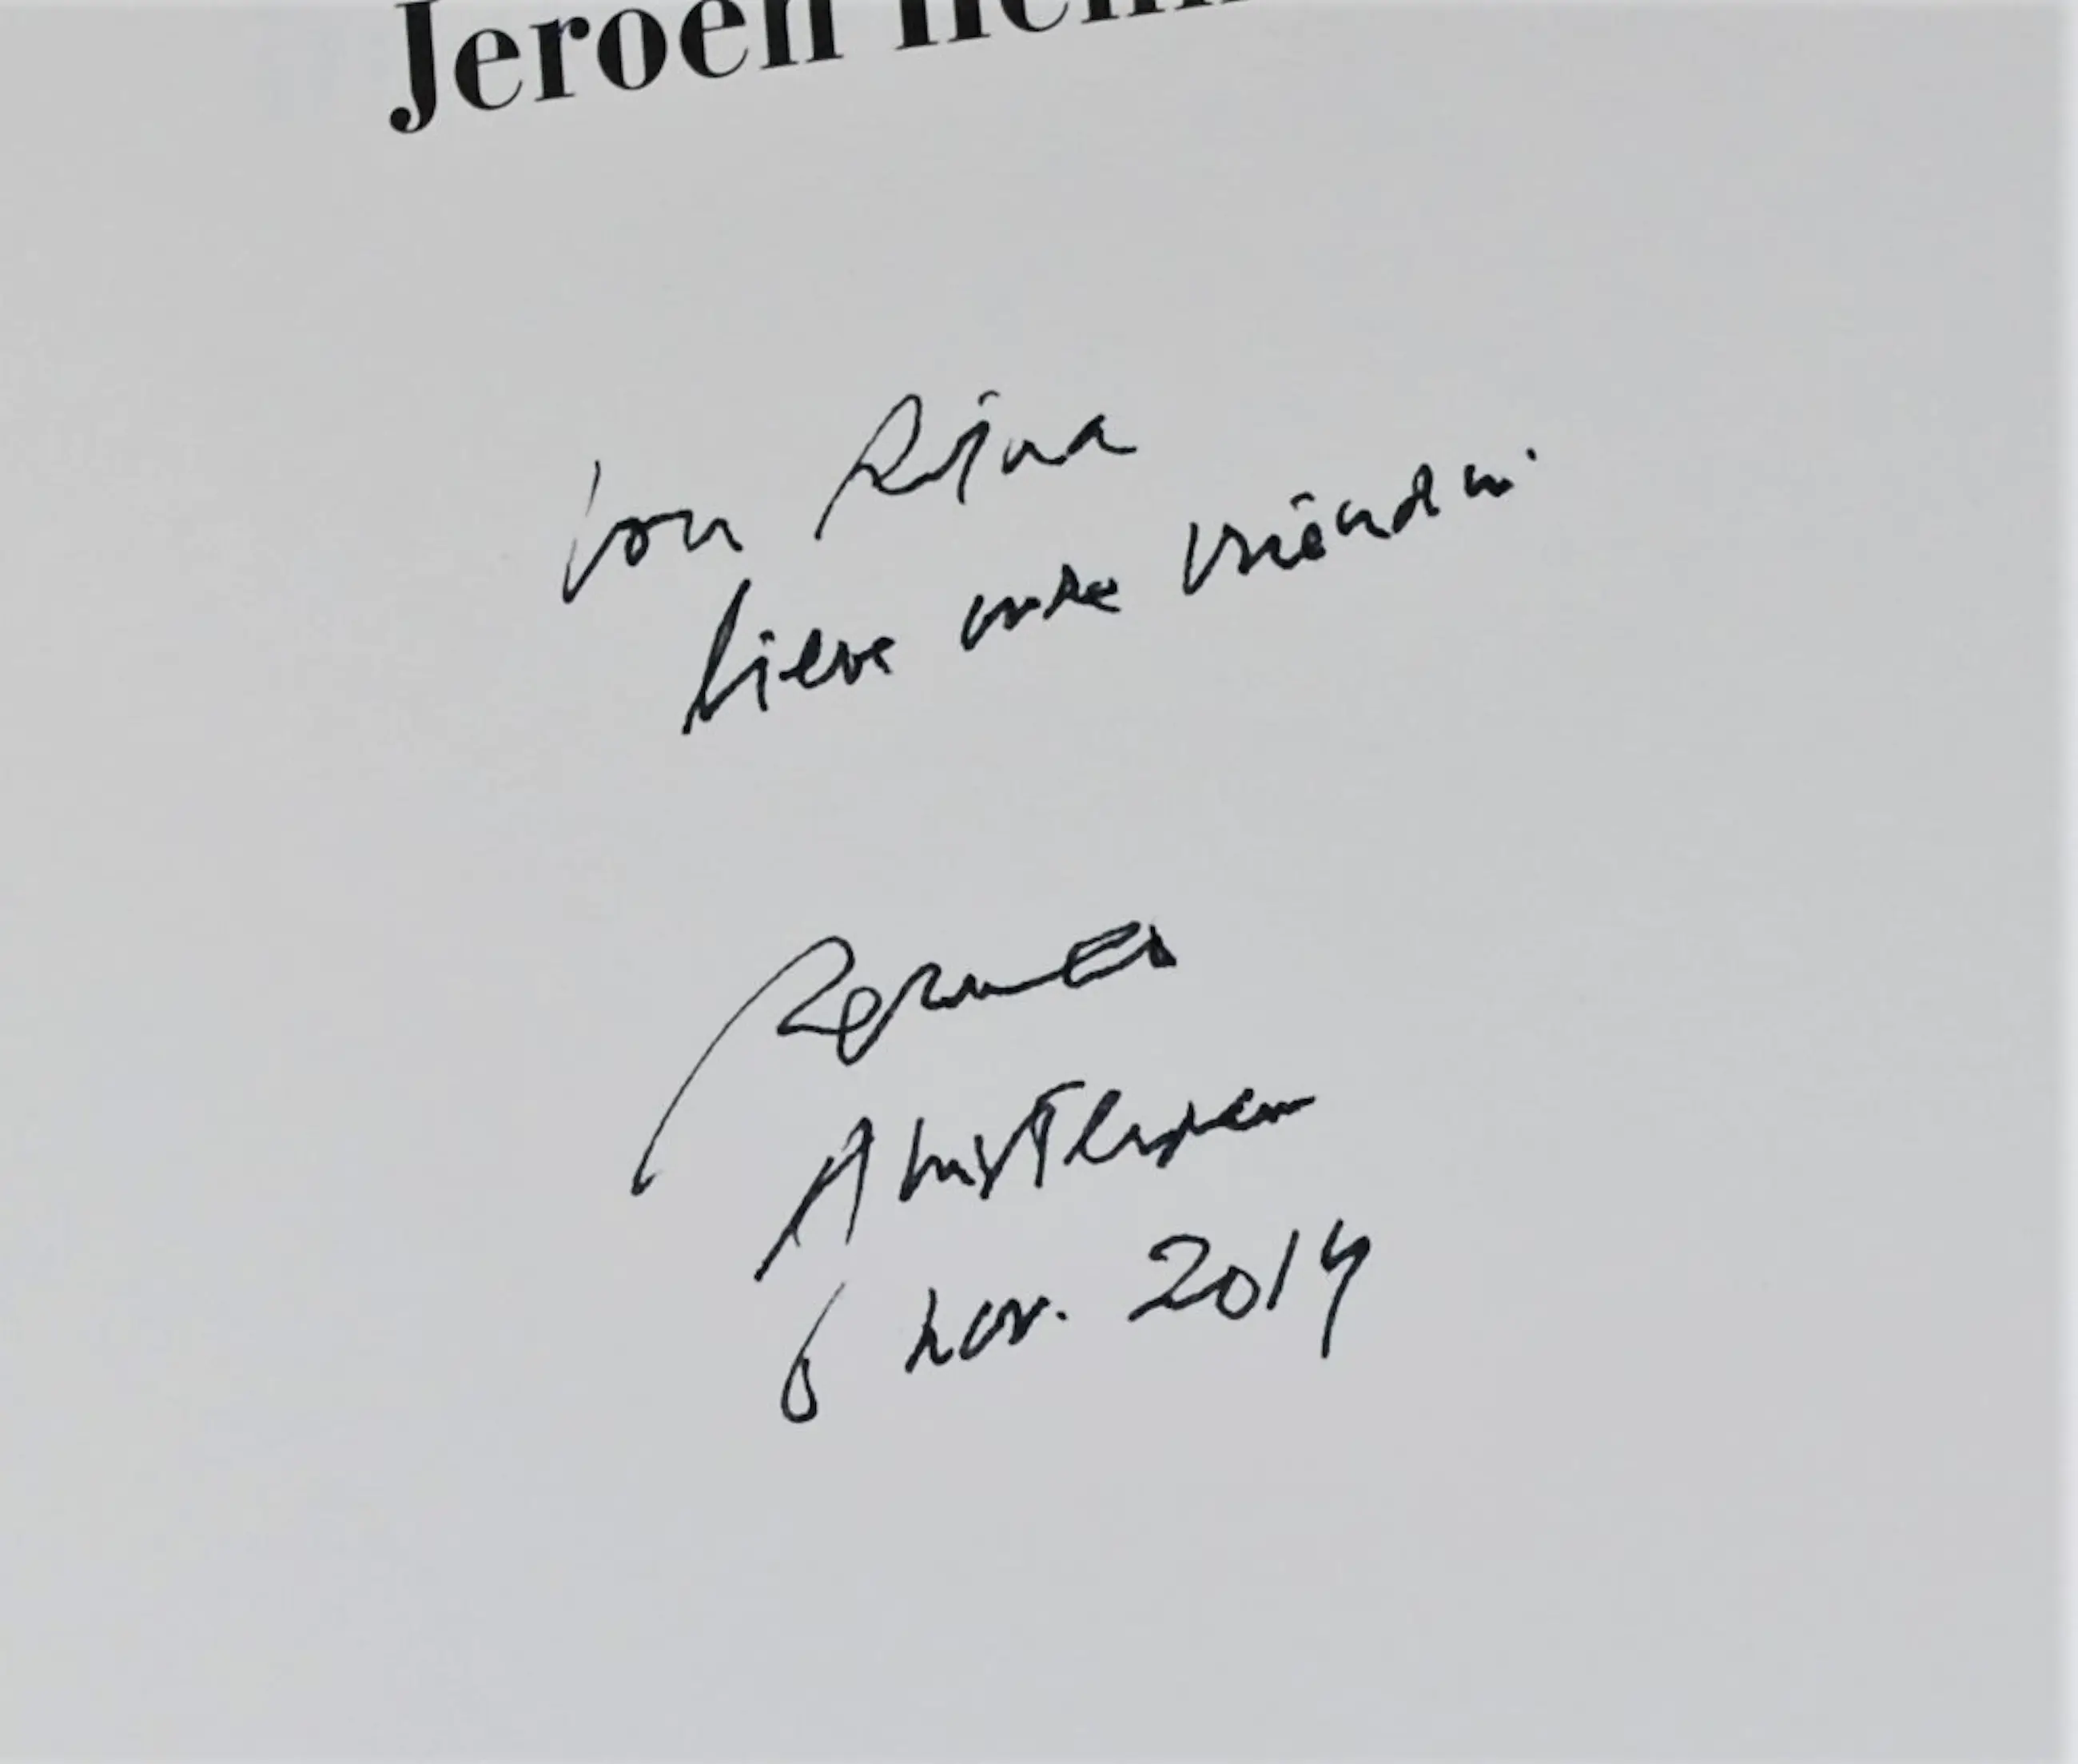 Jeroen
voor
lieve oude vriendin
Amsterdam
6 nov. 2014